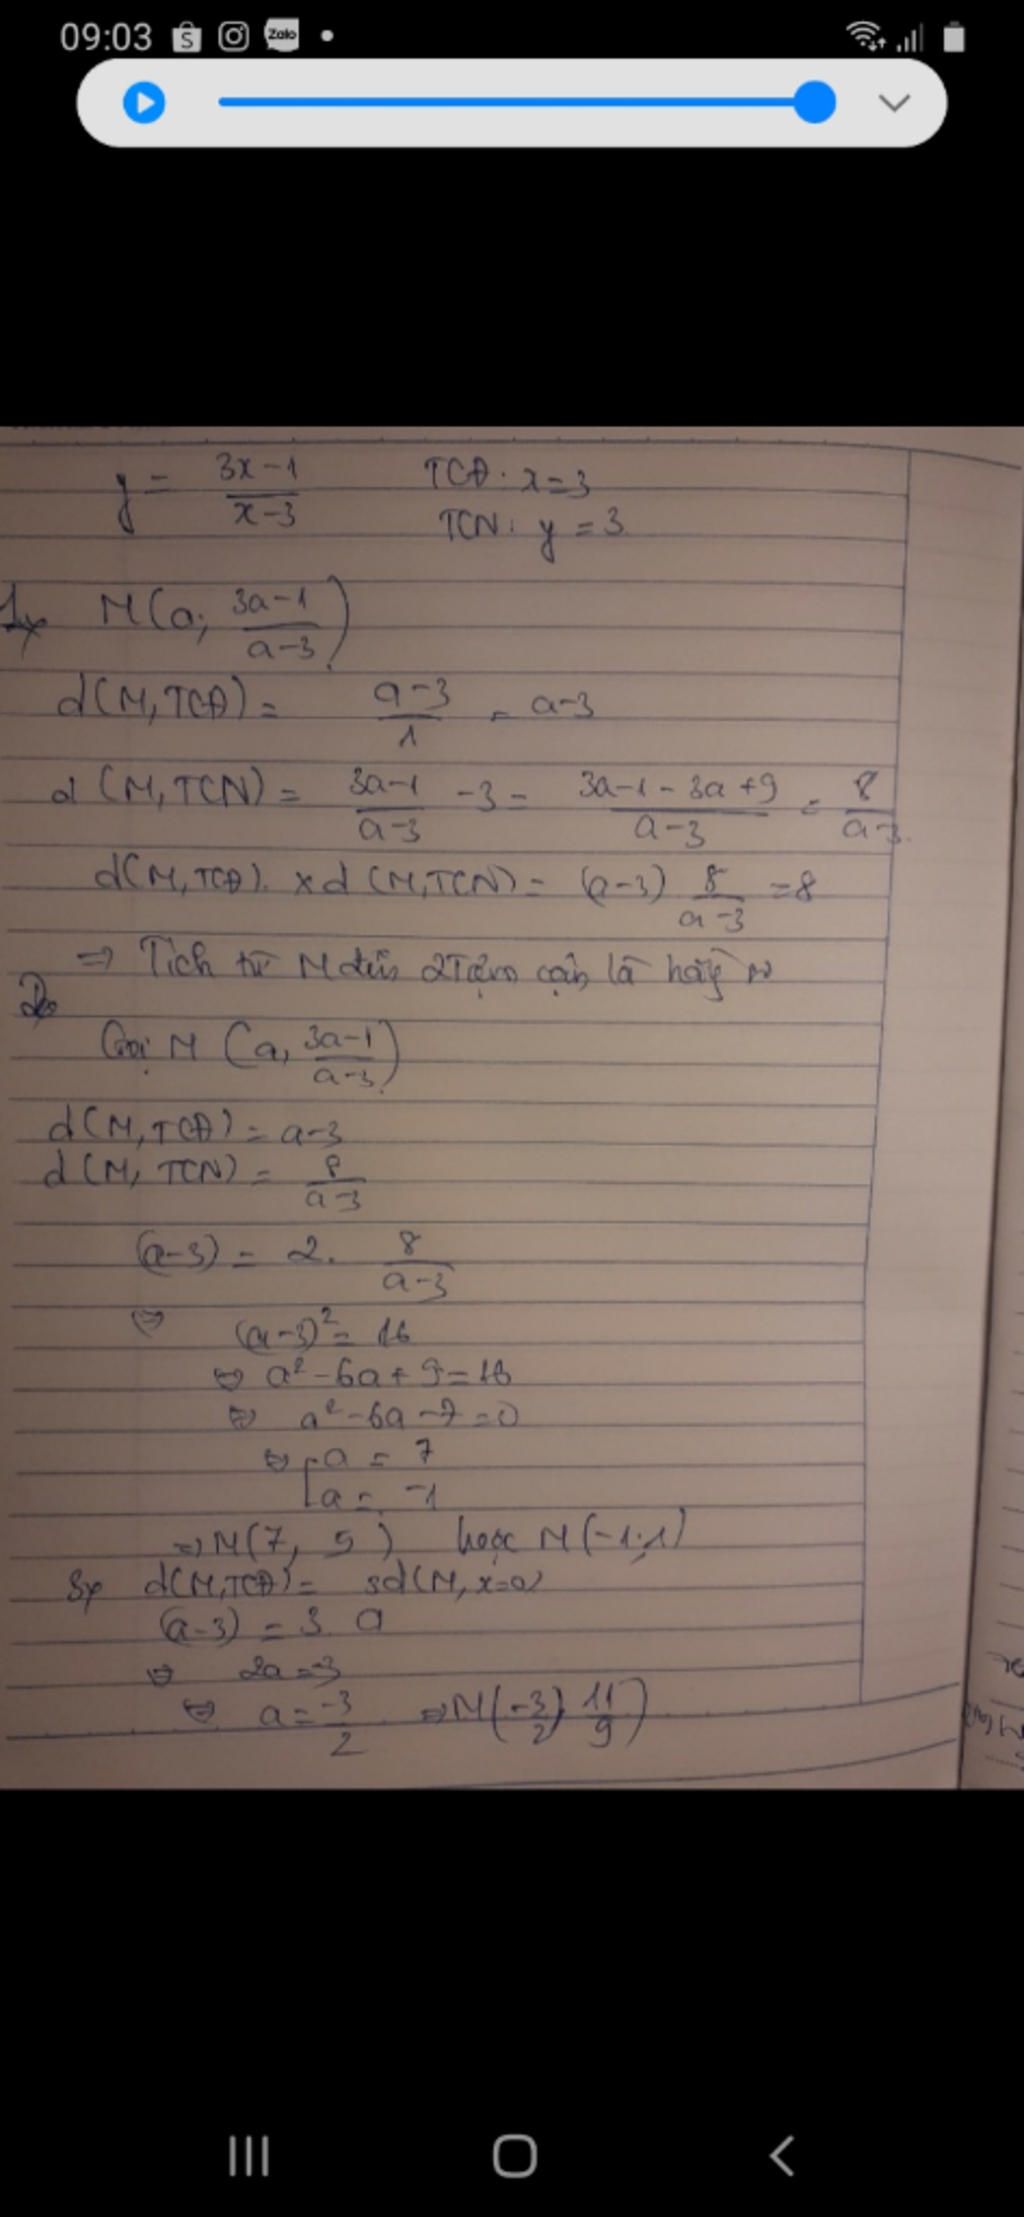 09:03 Zalo
y = (3x-1)/(x-3) TCĐ: x=3
TCN: y = 3
1, M(a; (3a-1)/(a-3))
d(M,TCĐ) = (a-3)/1 = a-3
d(M,TCN) = (3a-1)/(a-3) -3 = (3a-1-3a+9)/(a-3) = 8/(a-3)
d(M,TCĐ). x d(M,TCN) = (a-3) 8/(a-3) = 8
=> Tích từ M đến 2 Tiệm cận là hằng
2,
Gọi M (a, (3a-1)/(a-3))
d(M,TCĐ) = a-3
d(M, TCN) = 8/(a-3)
(a-3) = 2. 8/(a-3)
⇔ (a-3)² = 16
⇔ a² -6a + 9 = 16
⇔ a² -6a -7 = 0
⇔ [a = 7
[a = -1
=> M(7, 5) hoặc M(-1;1)
3, d(M,TCĐ) = 3d(M, x=0)
(a-3) = 3 a
⇔ 2a = -3
⇔ a = -3/2 => M(-3/2; 11/9)